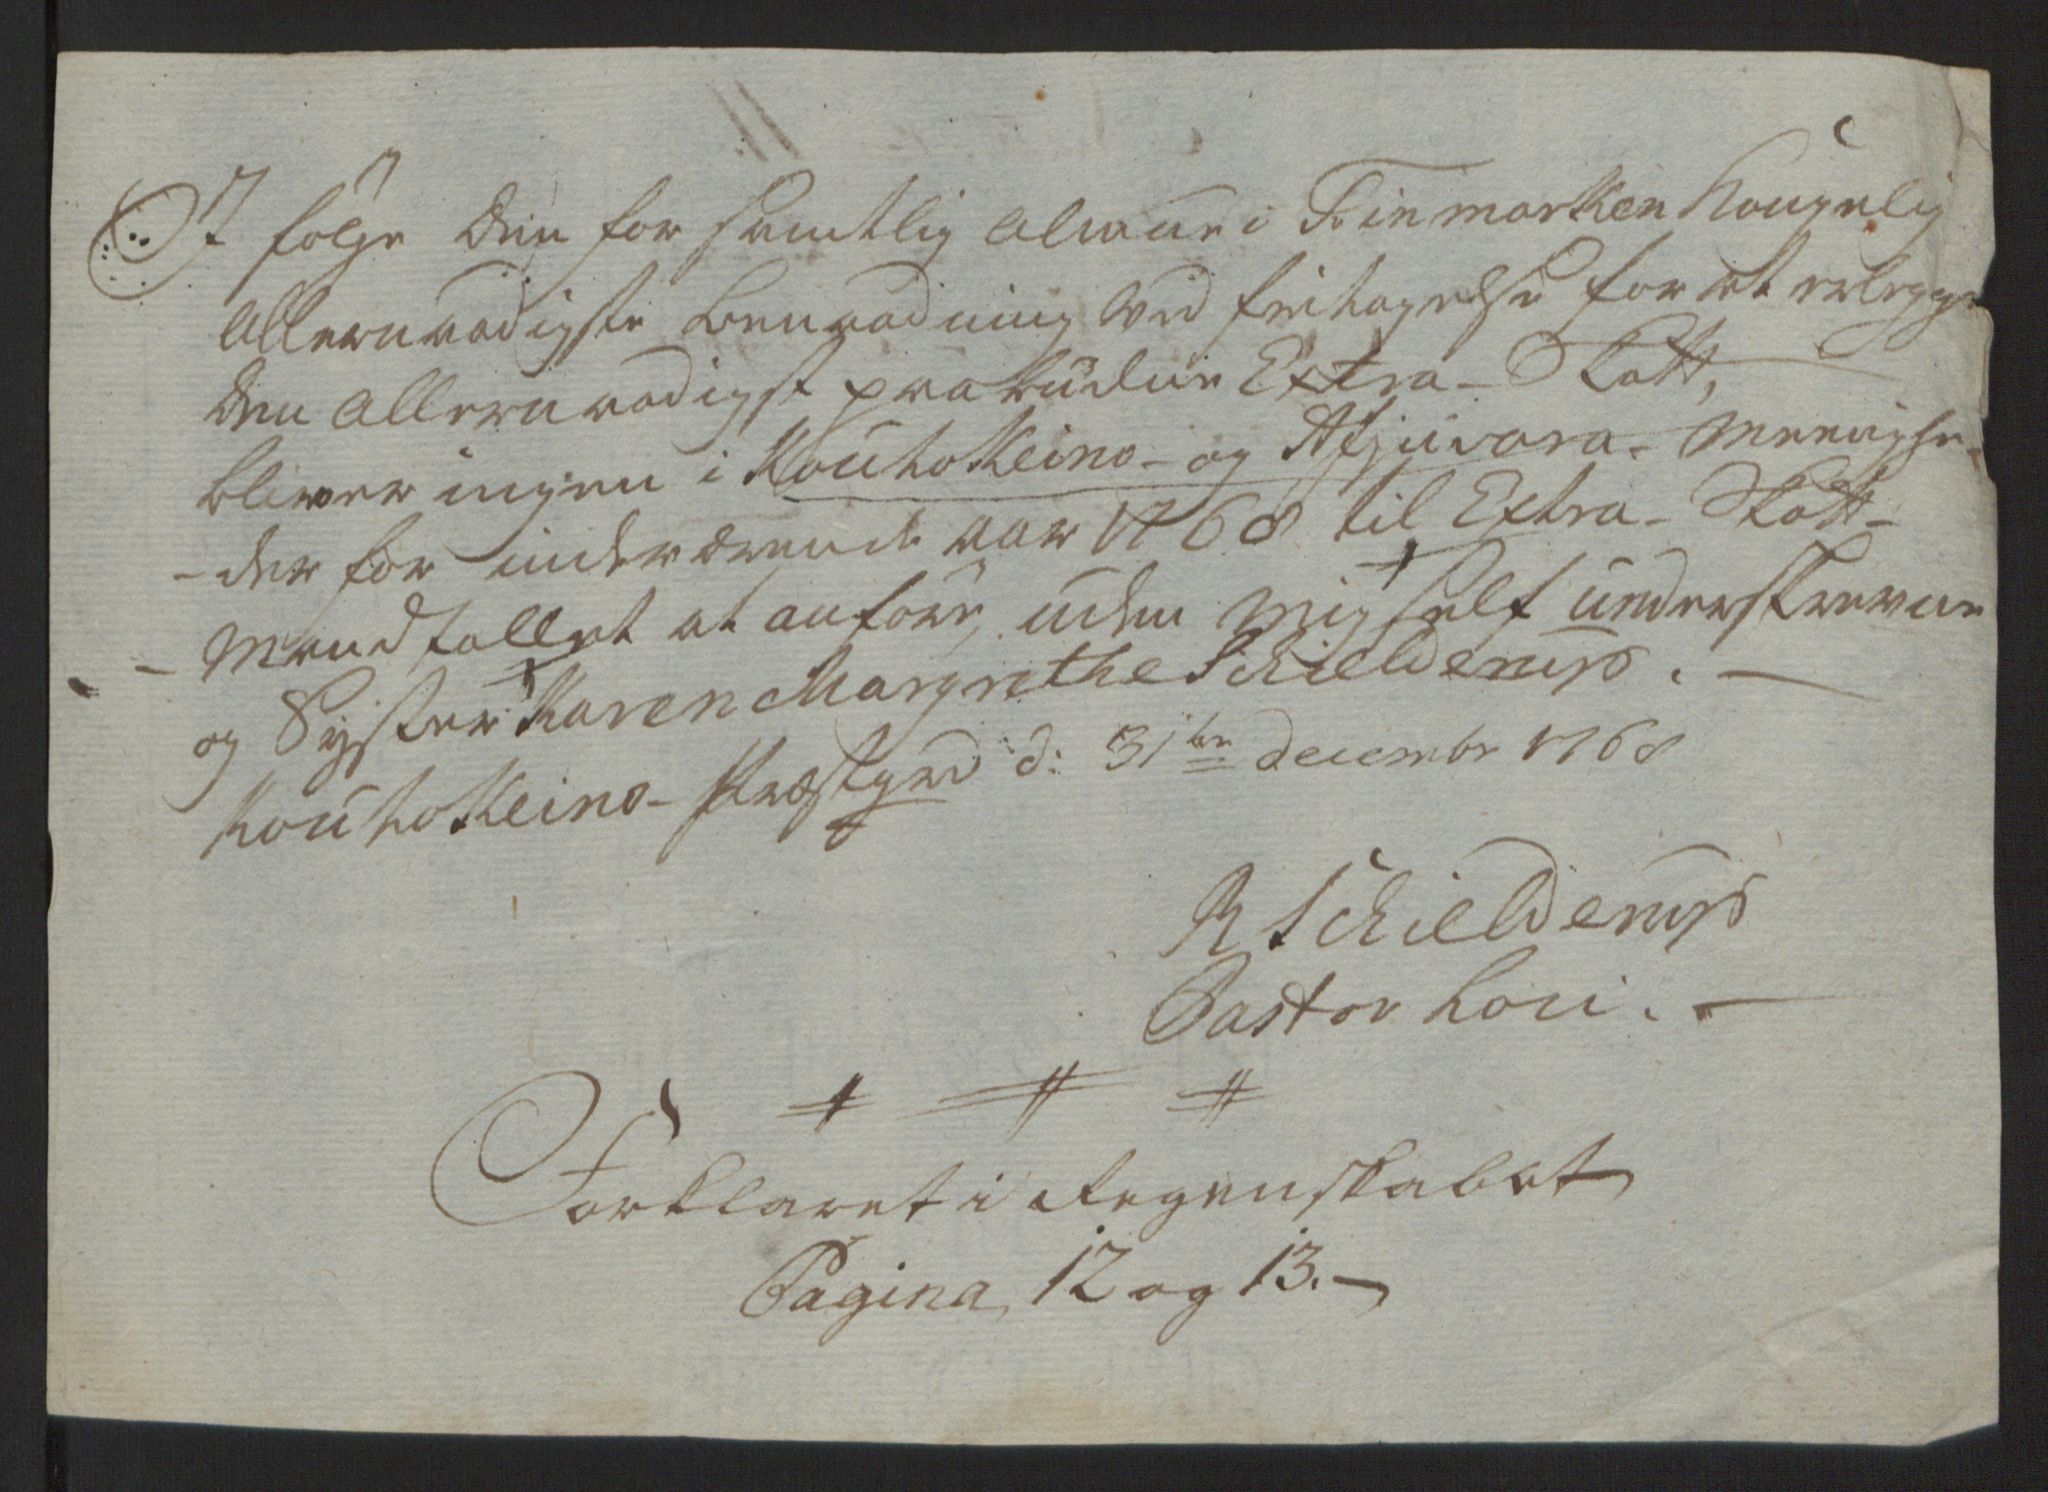 I følge den for samtlig Almue i Finmarken Kongelig
Allernaadigste Benaadning ved fritagelse for at erlegge
den Allernaadigst paabudne Extra-Skatt,
bliver ingen i Koutokeino- og Afjuvara- Menighe-
-der for inderværende aar 1768 til Extra-Skatt-
-Mandtallet at anføre, uden Mig self underskrevne
og Syster Karen Margrethe Schielderup.
Koutokeino- Præstgrd d: 31te decembr 1768
R Schielderup
Pastor Loci.
Forklaret i Regenskabet
Pagina 12 og 13.